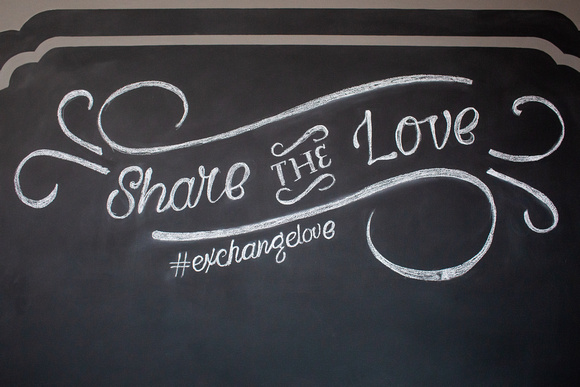 Share THE Love
#exchangelove